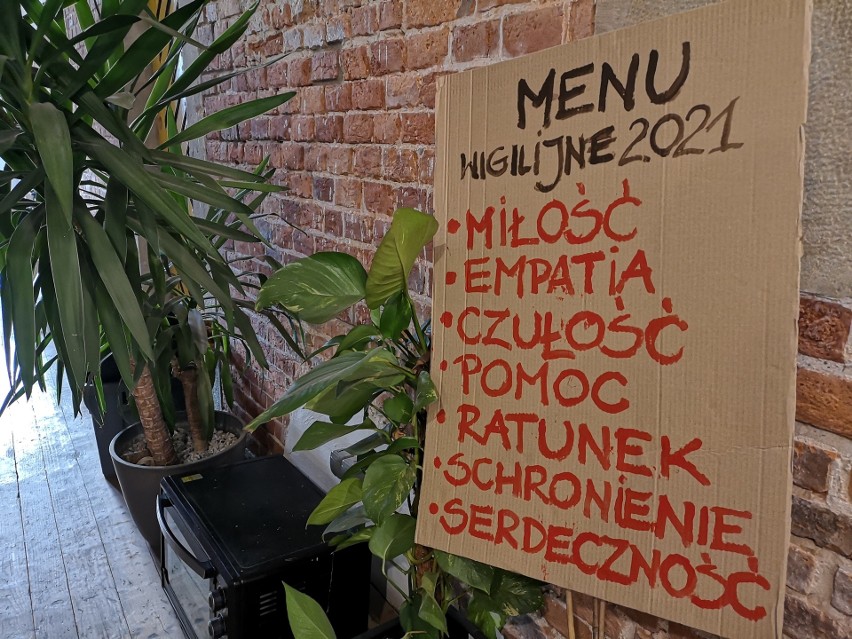 MENU
WIGILIJNE 2021
• MIŁOŚĆ
• EMPATIA
• CZUŁOŚĆ
• POMOC
• RATUNEK
• SCHRONIENIE
• SERDECZNOŚĆ